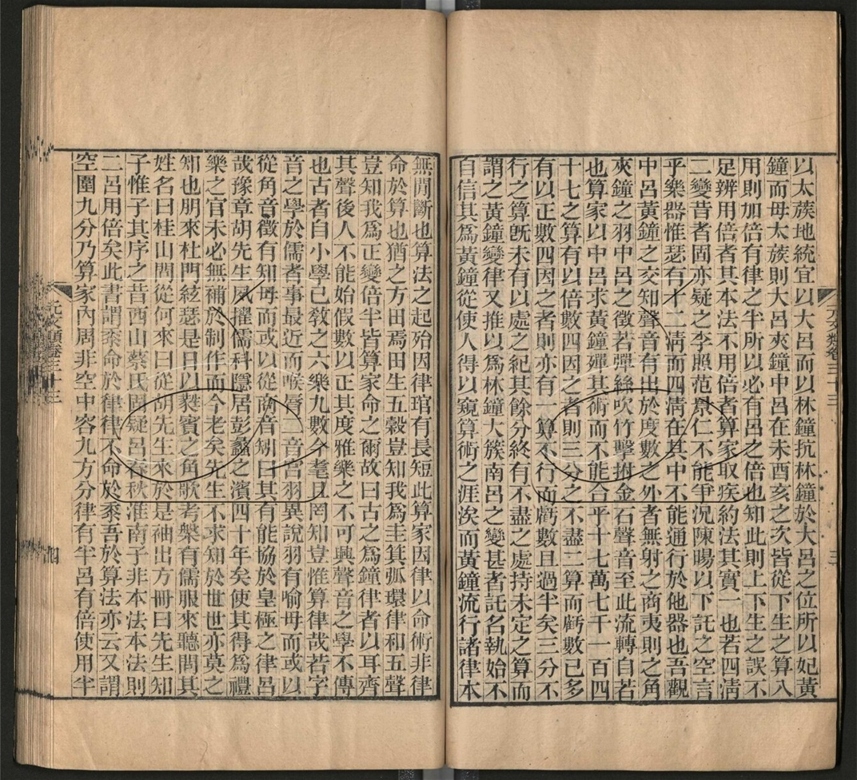 以太蔟地統宜以大呂而以林鐘抗林鐘於大呂之位所以妃黃
鐘而母太蔟則大呂夾鐘中呂在未酉亥之次皆從下生之算入
用則加倍有律之半所以必有呂之倍也知此則上下生之誤不
足辨用倍者其本法不用倍者算家取疾約法其實一也若四淸
二變昔者固亦疑之李照范景仁不能爭況陳暘以下託之空言
乎樂器惟瑟有十二淸而四淸在其中不能通行於他器也吾觀
中呂黃鐘之交知聲音有出於度數之外者無射之商夷則之角
夾鐘之羽中呂之徵若彈絲吹竹擊拊金石聲音至此流轉自若
也算家以中呂求黃鐘殫其術而不能合乎十七萬七千一百四
十七之算有以倍數四因之者則三分之不盡二算而虧數已多
有以正數四因之者則亦有一算不行而虧數且過半矣三分不
行之算旣未有以處之紀其餘分終有不盡之處持未定之算而
謂之黃鐘變律又推以爲林鐘大簇南呂之變甚者託名執始不
自信其爲黃鐘從使人得以窺算術之涯涘而黃鐘流行諸律本
元文類卷三十三
三
無閒斷也算法之起殆因律琯有長短此算家因律以命術非律
命於算也猶之方田焉田生五穀豈知我爲圭箕弧環律和五聲
豈知我爲正變倍半皆算家命之爾故曰古之爲鐘律者以耳齊
其聲後人不能始假數以正其度雅樂之不可興聲音之學不傳
也古者自小學已敎之六樂九數今耄且罔知豈惟算律哉若字
音之學於儒者事最近而喉脣二音宮羽異說羽有喻母而或以
從角音徵有知母而或以從商音知曰其有能協於皇極之律呂
哉豫章胡先生夙擢儒科隱居彭蠡之濱四十年矣使其得爲禮
樂之官未必無補於制作而今老矣先生不求知於世世亦莫之
知也朋來杜門絃瑟是日以蕤賓之角歌考槃有儒服來聽問其
姓名曰桂山閻從何來曰從胡先生來於是袖出方冊曰先生知
子惟子其序之昔西山蔡氏固疑呂春秋淮南子非本法本法則
二呂用倍矣此書謂黍命於律律不命於黍吾於算法亦云又謂
空圍九分乃算家內周非空中容九方分律有半呂有倍使用半
元文類卷三十三
四